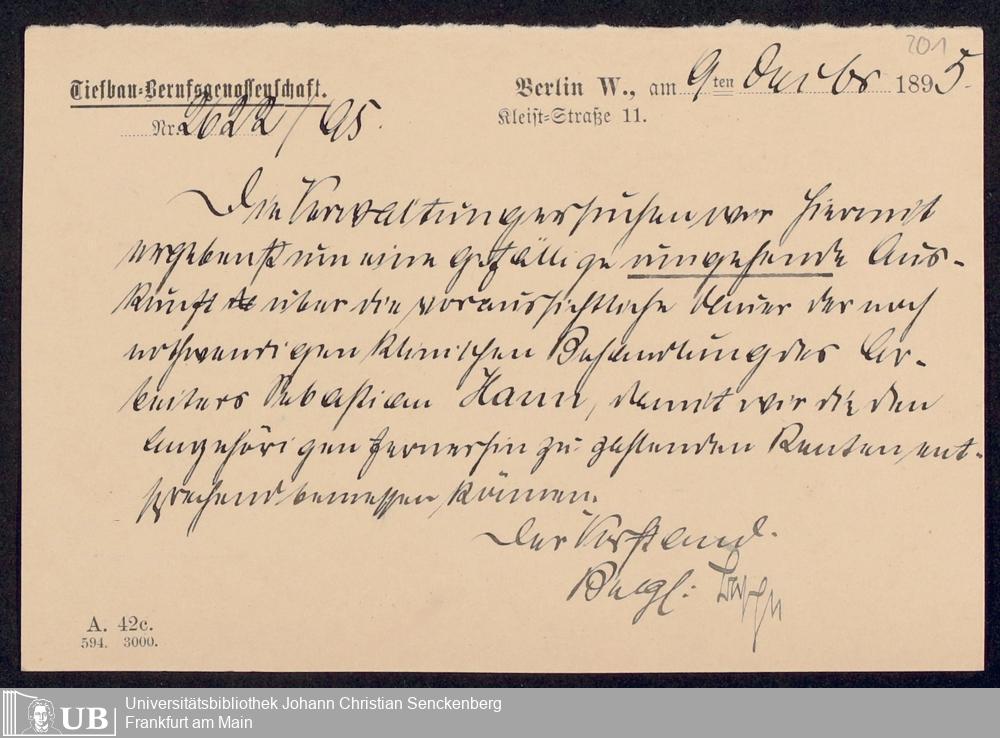 201
Tiefbau-Berufsgenossenschaft.
Berlin W., am 9ten Dezbr 1895.
Nr. 2622/95.
Kleist-Straße 11.
Die Verwaltung ersuchen wir hiermit
ergebenst um eine gefällige umgehende Aus-
kunft über die voraussichtliche Dauer der noch
nothwendigen klinischen Behandlung des Ar-
beiters Sebastian Hann, damit wir die den
Angehörigen fernerhin zu zahlenden Renten ent-
sprechend bemessen können.
Der Vorstand.
Begl:
A. 42c.
594. 3000.
UB
Universitätsbibliothek Johann Christian Senckenberg
Frankfurt am Main